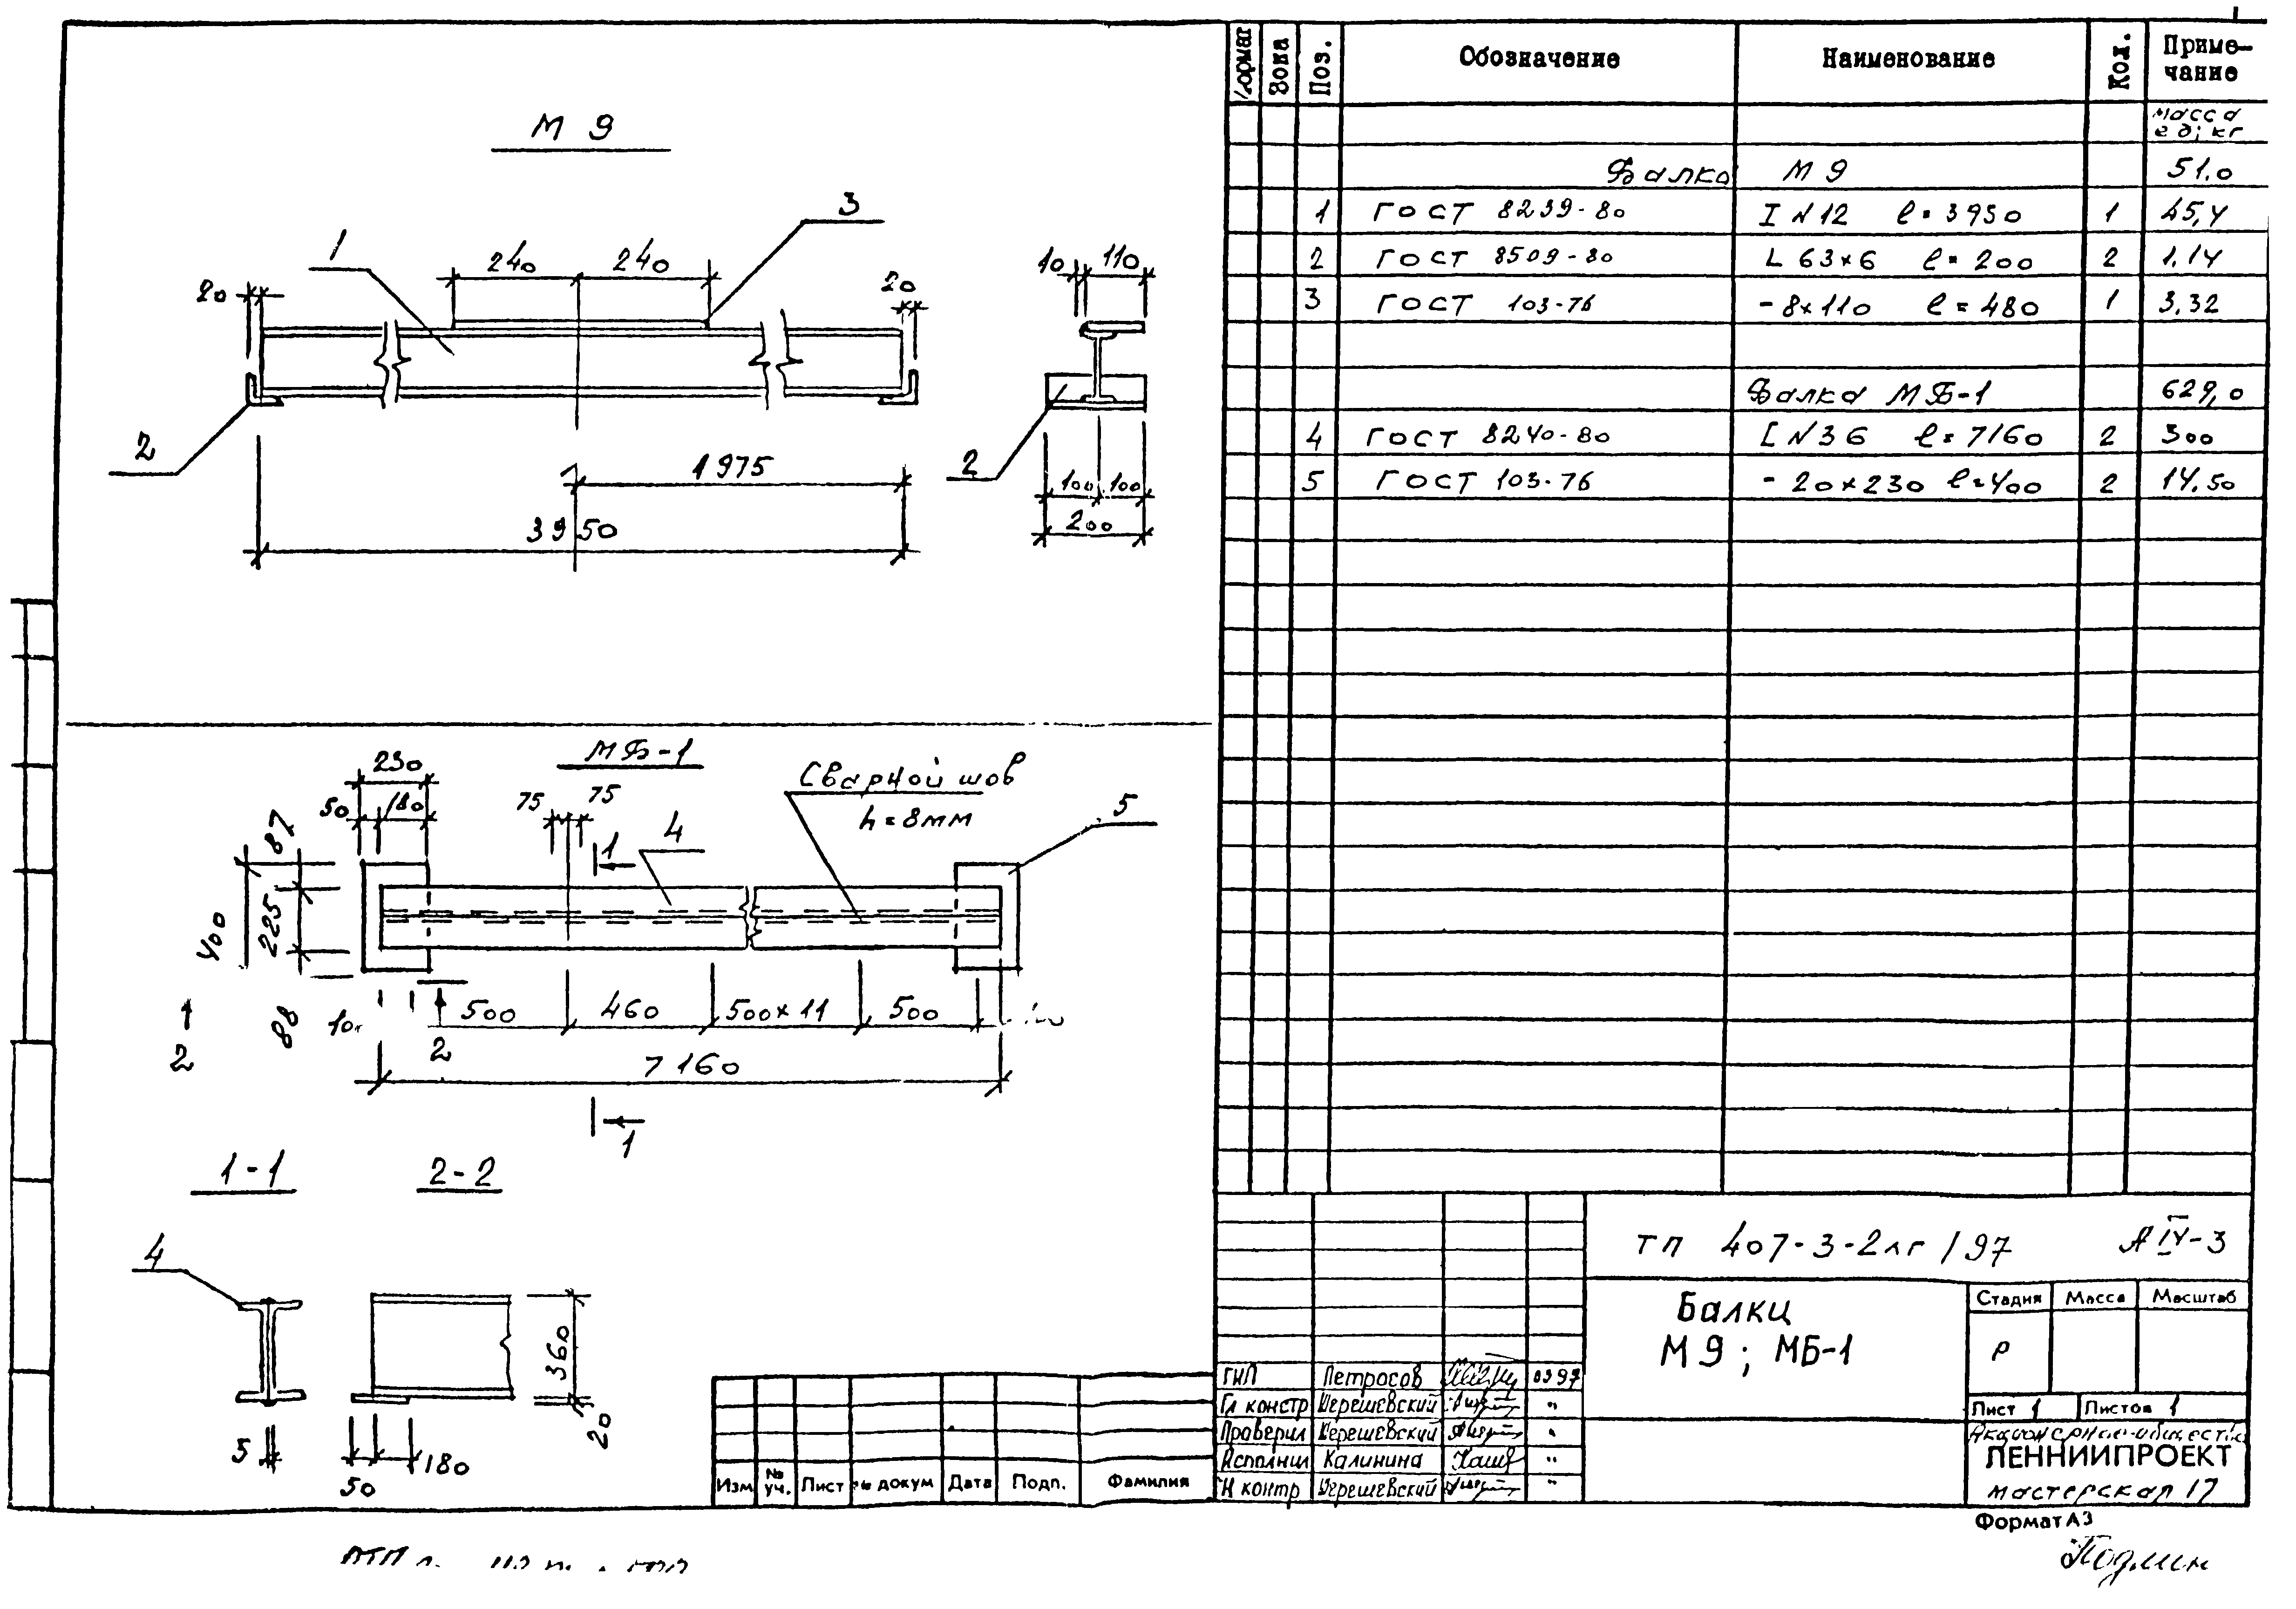 М 9
1
3
240 240
20
20
2
1975
3950
10 110
2
100 100
200
МБ-1
230
50 180
75 75
Сварной шов
h=8мм
4
5
1
87
225
400
88
2
500 460 500×11 500
2
7160
1
1-1
2-2
4
5
360
20
50
180
Формат Зона Поз. Обозначение Наименование Кол. Приме-
чание
масса
ед; кг
Балка М 9 51.0
1 ГОСТ 8239-80 I N 12 ℓ=3950 1 45,4
2 ГОСТ 8509-80 L 63×6 ℓ=200 2 1.14
3 ГОСТ 103-76 -8×110 ℓ=480 1 3,32
Балка МБ-1 629,0
4 ГОСТ 8240-80 [ N 36 ℓ=7160 2 300
5 ГОСТ 103-76 -20×230 ℓ=400 2 14.50
ТП 407-3-2лг/97 А IV-3
Балки
М 9 ; МБ-1
Стадия Масса Масштаб
Р
Лист 1 Листов 1
Акционерное общество
ЛЕННИИПРОЕКТ
мастерская 17
ГИП Петросов 03 97
Гл констр Шерешевский "
Проверил Шерешевский "
Исполнил Калинина "
Н контр Шерешевский "
Изм № уч. Лист № докум Дата Подп. Фамилия
Формат А3